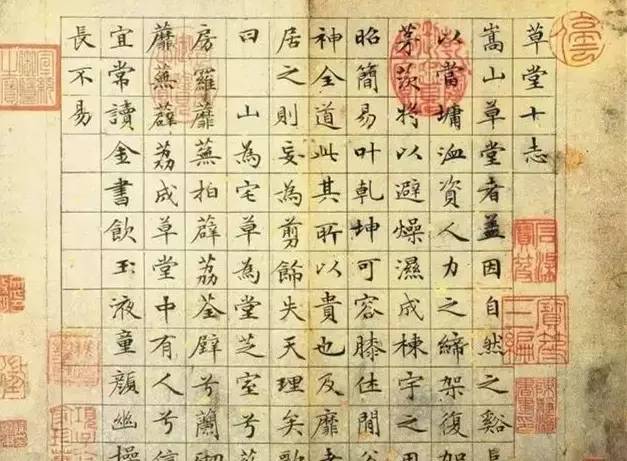 草堂十志
嵩山草堂者盖因自然之谿
以當墉洫資人力之締架復加
茅茨將以避燥濕成棟宇之用
昭簡易叶乾坤可容膝休閒谷
神全道此其所以貴也及靡者
居之則妄為剪飾失天理矣歌
曰山為宅草為堂芝室兮
房羅蘼蕪拍薜荔荃壁兮蘭砌
蘼蕪薜荔成草堂中有人兮信
宜常讀金書飲玉液童顏幽操
長不易
石渠寶笈
寶笈三編